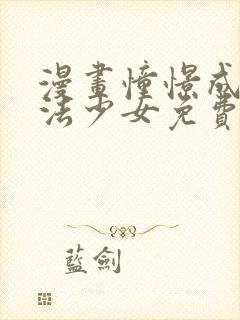 漫畫憧憬成
法少女免費
藍劍